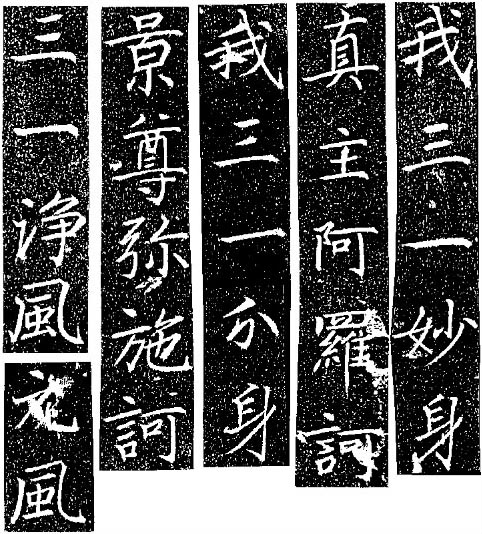 我三一妙身
真主阿羅訶
我三一分身
景尊弥施訶
三一净風
元風